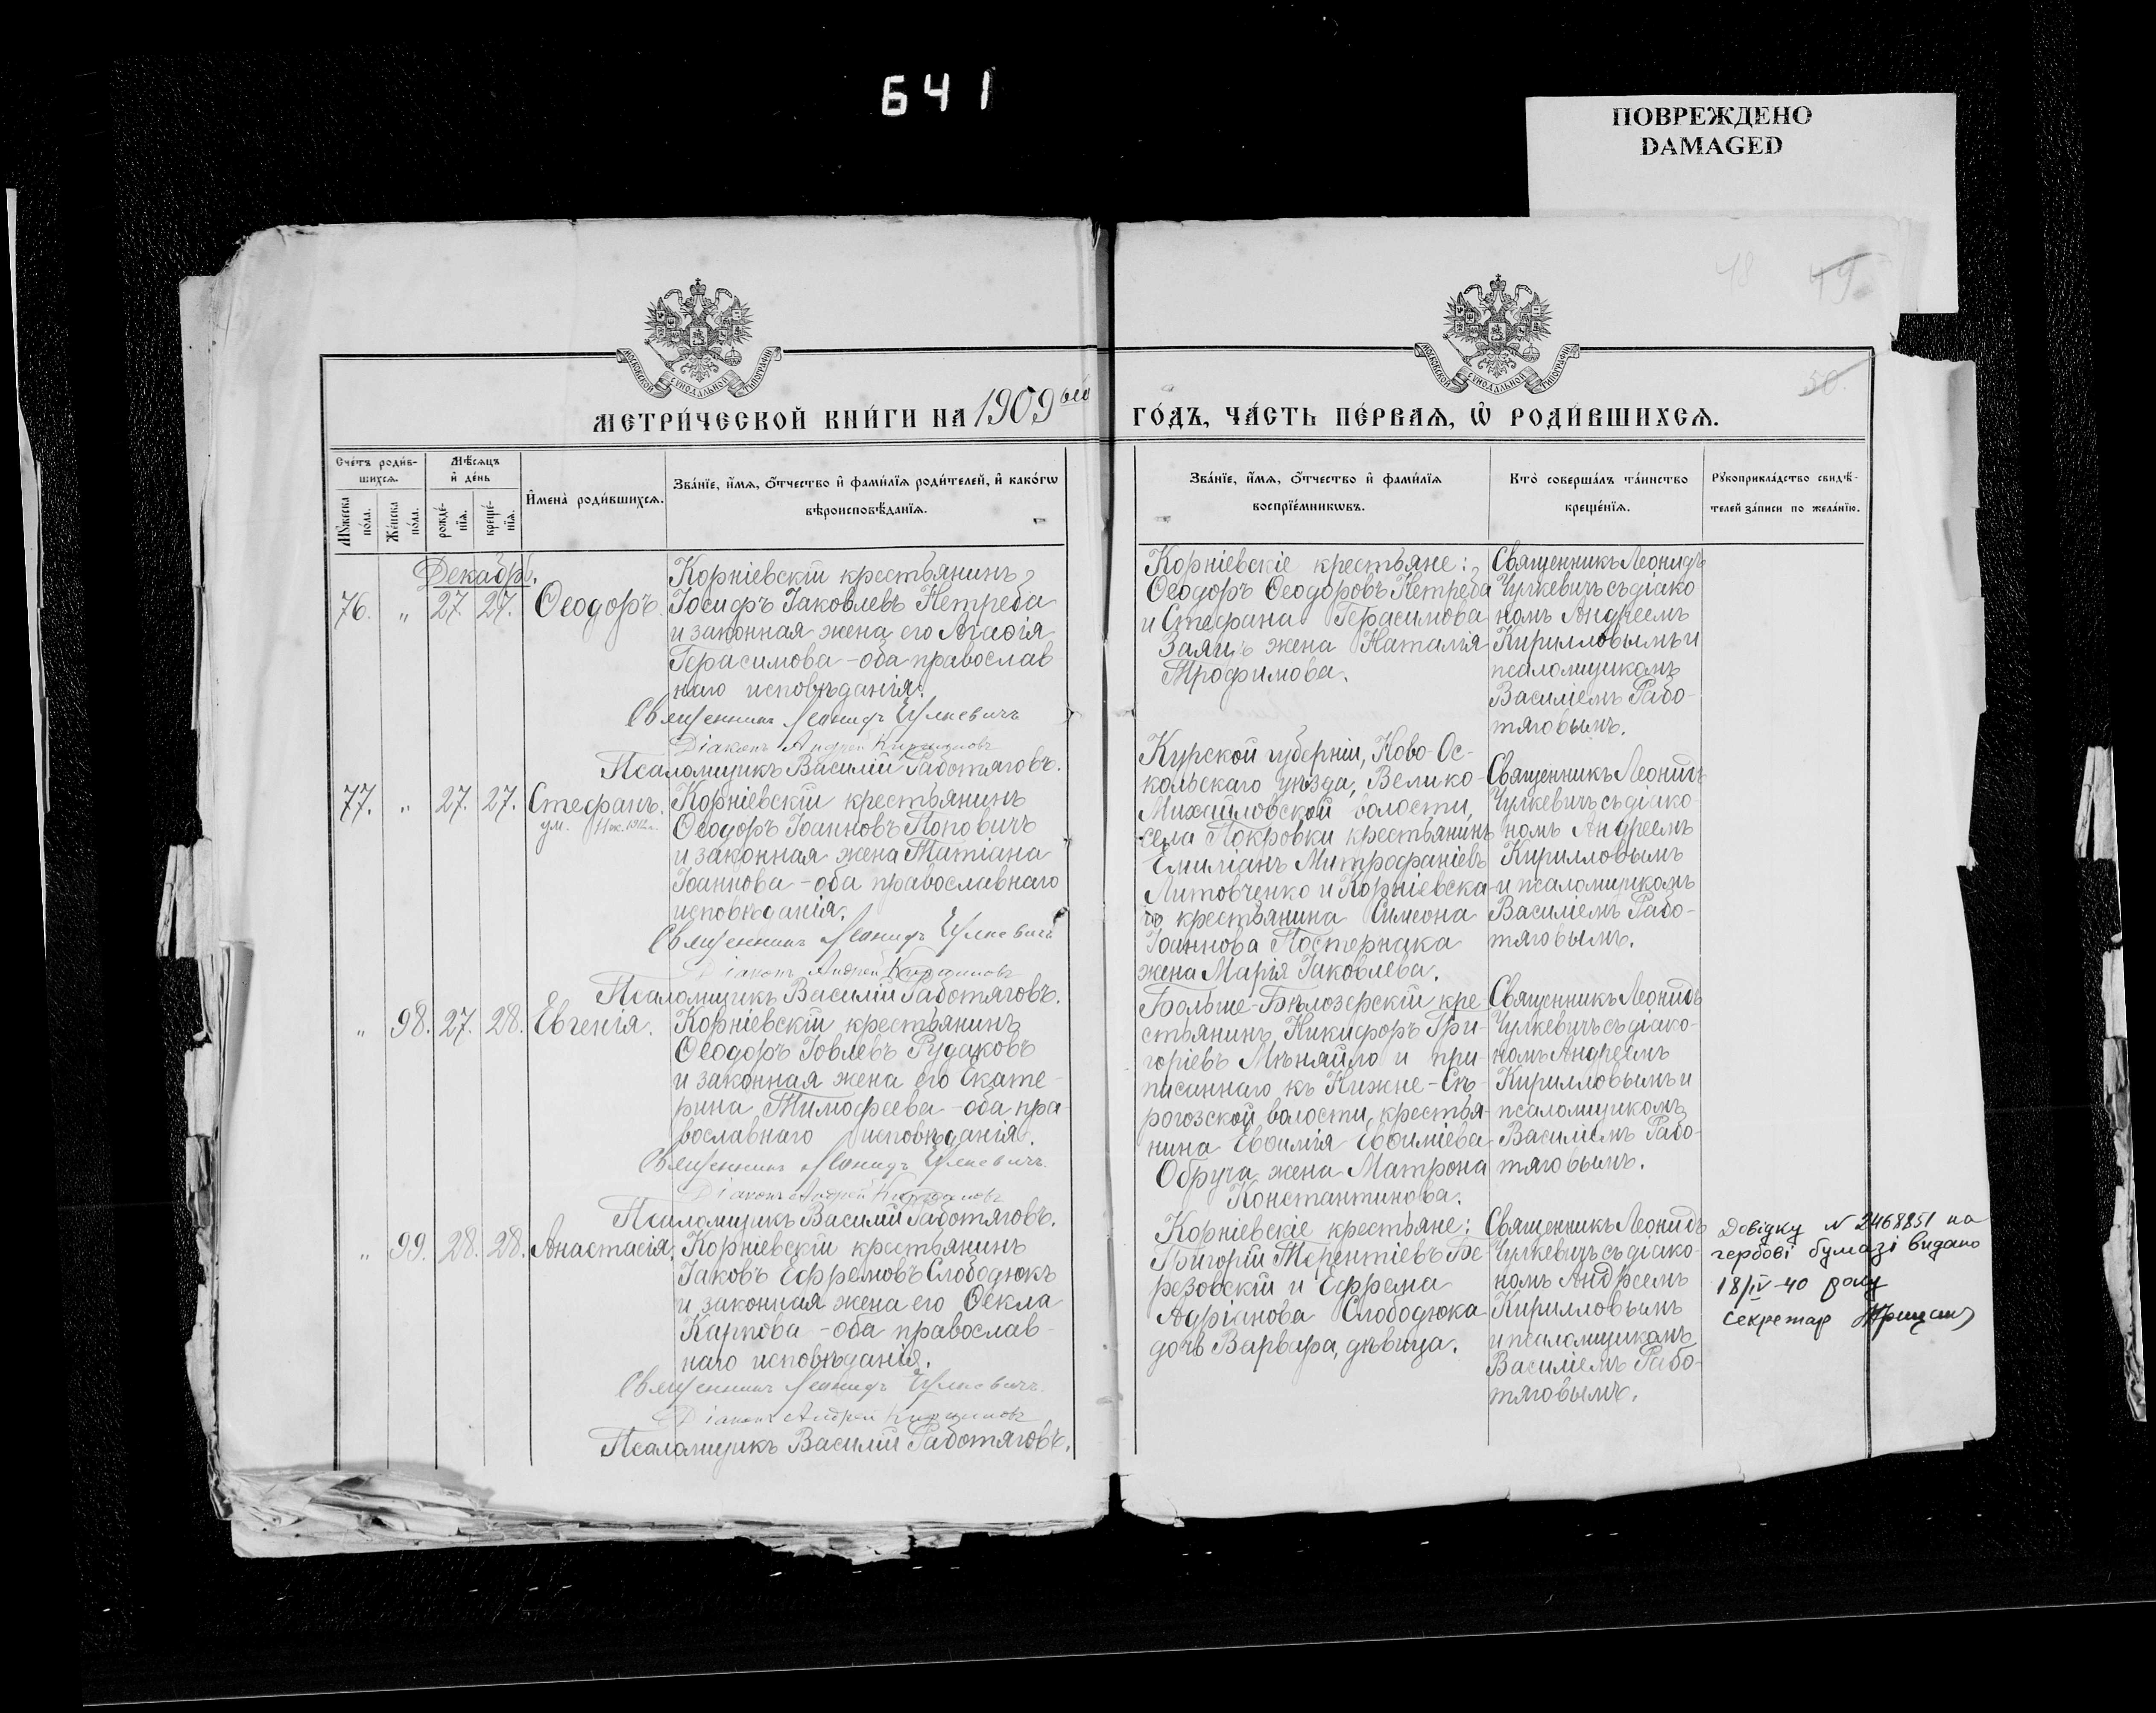 641
ПОВРЕЖДЕНО
DAMAGED
48 49
50.
МОСКОВСКОЙ СѴНОДАЛЬНОЙ ТИПОГРАФІИ
МОСКОВСКОЙ СѴНОДАЛЬНОЙ ТИПОГРАФІИ
МЕТРИ́ЧЕСКОЙ КНИ́ГИ НА 1909ый
ГО́ДЪ, ЧА́СТЬ ПЕ́РВАѦ, Ѡ҆ РОДИ́ВШИХСѦ.
Сче́тъ роди́в-
шихсѧ.
Мѣ́сѧцъ
и҆ де́нь
Мꙋ́жеска
по́ла.
Же́нска
по́ла.
рожде́-
нїѧ.
креще́-
нїѧ.
И҆мена̀ роди́вшихсѧ.
Зва́нїе, и҆́мѧ, ѻ҆́тчество и҆ фами́лїѧ роди́телей, и҆ како́гѡ
вѣроисповѣ́данїѧ.
Зва́нїе, и҆́мѧ, ѻ҆́тчество и҆ фами́лїѧ
воспрїе́мникѡвъ.
Кто̀ соверша́лъ та́инство
креще́нїѧ.
Рꙋкоприкла́дство свидѣ́-
телей за́писи по жела́нїю.
Декабр.
76. „ 27. 27. Ѳеодоръ.
Корніевскій крестьянинъ
Іосифъ Іаковлевъ Нетреба
и законная жена его Агафія
Герасимова – оба православ
наго исповѣданія.
Священникъ Леонидъ Чулкевичъ
Діаконъ Андрей Кирилловъ
Псаломщикъ Василій Работяговъ.
Корніевскіе крестьяне:
Ѳеодоръ Ѳеодоровъ Нетреба
и Стефана Герасимова
Заяцъ жена Наталія
Трофимова.
Священникъ Леонидъ
Чулкевичъ съ діако
номъ Андреемъ
Кирилловымъ и
псаломщикомъ
Василіемъ Рабо-
тяговымъ.
77. „ 27. 27. Стефанъ.
ум. 11 ок. 1912 г.
Корніевскій крестьянинъ
Ѳеодоръ Іоанновъ Поповичъ
и законная жена Татіана
Іоаннова – оба православнаго
исповѣданія.
Священникъ Леонидъ Чулкевичъ
Діаконъ Андрей Кирилловъ
Псаломщикъ Василій Работяговъ.
Курской губерніи, Ново-Ос-
кольскаго уѣзда, Велико-
Михайловской волости,
села Покровки крестьянинъ
Емиліанъ Митрофаніевъ
Литовченко и Корніевска-
го крестьянина Симеона
Іоаннова Постернака
жена Марія Іаковлева.
Священникъ Леонидъ
Чулкевичъ съ діако-
номъ Андреемъ
Кирилловымъ
и псаломщикомъ
Василіемъ Рабо-
тяговымъ.
„ 98. 27. 28. Евгенія.
Корніевскій крестьянинъ
Ѳеодоръ Іовлевъ Рудаковъ
и законная жена его Екате-
рина Тимофеева – оба пра-
вославнаго исповѣданія.
Священникъ Леонидъ Чулкевичъ.
Діаконъ Андрей Кирилловъ
Псаломщикъ Василій Работяговъ.
Больше-Бѣлозерскій кре-
стьянинъ Никифоръ Гри-
горіевъ Мѣняйло и при-
писаннаго къ Нижне-Сѣ-
рогозской волости, крестья-
нина Евѳимія Евѳиміева
Обруча жена Матрона
Константинова.
Священникъ Леонидъ
Чулкевичъ съ діако-
номъ Андреемъ
Кирилловымъ и
псаломщикомъ
Василіемъ Рабо-
тяговымъ.
„ 99. 28. 28. Анастасія.
Корніевскій крестьянинъ
Іаковъ Ефремовъ Слободюкъ
и законная жена его Ѳекла
Карпова – оба православ-
наго исповѣданія.
Священникъ Леонидъ Чулкевичъ.
Діаконъ Андрей Кирилловъ
Псаломщикъ Василій Работяговъ.
Корніевскіе крестьяне:
Григорій Терентіевъ Бе-
резовскій и Ефрема
Адріанова Слободюка
дочь Варвара, дѣвица.
Священникъ Леонидъ
Чулкевичъ съ діако-
номъ Андреемъ
Кирилловымъ
и псаломщикомъ
Василіемъ Рабо-
тяговымъ.
Довідку № 2468851 на
гербові бумазі видано
18/IV-40 року
Секретар